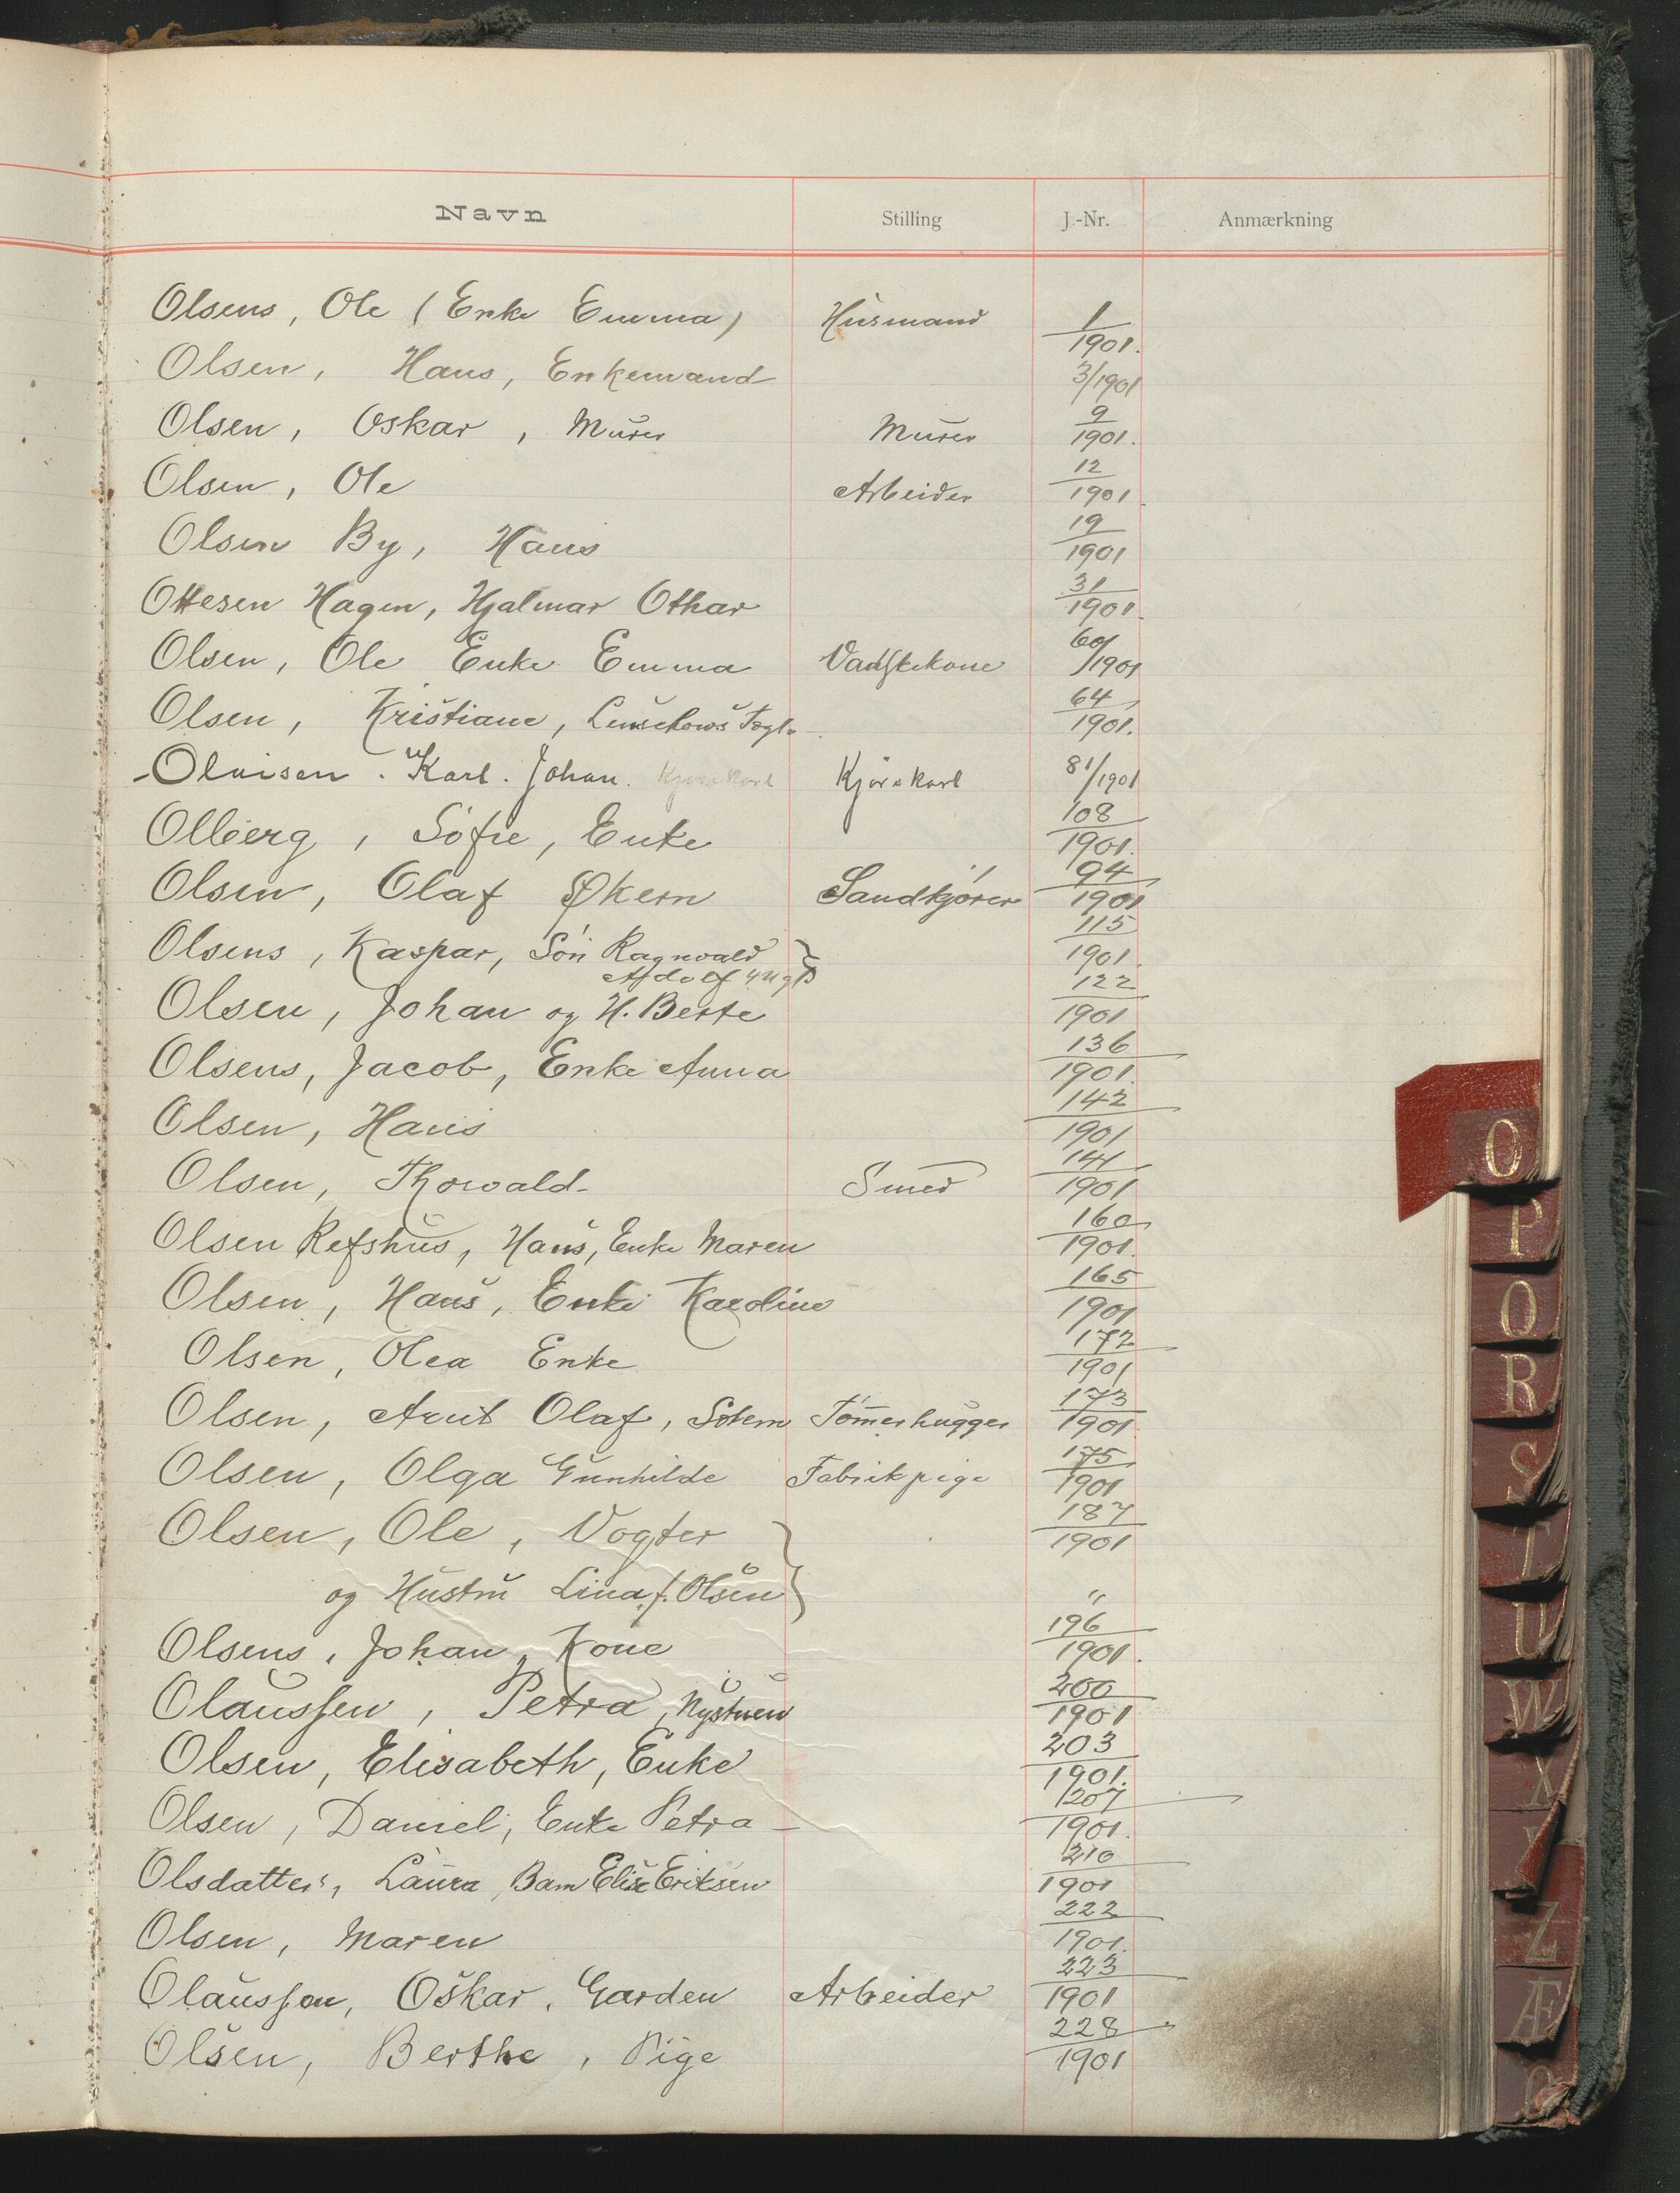 Navn Stilling J.-Nr. Anmærkning
Olsens, Ole (Enke Emma) Husmand 1/1901.
Olsen, Hans, Enkemand 3/1901
Olsen, Oskar, Murer Murer 9/1901.
Olsen, Ole Arbeider 12/1901
Olsen By, Hans 19/1901
Ottesen Hagen, Hjalmar Othar 31/1901.
Olsen, Ole Enke Emma Vadskekone 60/1901
Olsen, Kristiane, 64/1901.
Olaisen. Karl. Johan. Kjørekarl Kjørekarl 81/1901
Olberg, Sofie, Enke 108/1901.
Olsen, Olaf Økern Sandkjører 94/1901
Olsens, Kaspar, Søn Ragnvald 115/1901.
Adolf
Olsen, Johan og H. Berte 122/1901
Olsens, Jacob, Enke Anna 136/1901.
Olsen, Hans 142/1901
Olsen, Thorvald Smed 141/1901
Olsen Refshus, Hans, Enke Maren 160/1901.
Olsen, Hans, Enke Karoline 165/1901
Olsen, Olea Enke 172/1901
Olsen, Arnt Olaf, Tømmerhugger 173/1901
Olsen, Olga Gunhilde Fabrikpige 175/1901
Olsen, Ole, Vogter 187/1901
og Hustru Lina f. Olsen "
Olsens, Johan, Kone 196/1901.
Olaussen, Petra, Nystuen 200/1901
Olsen, Elisabeth, Enke 203/1901.
Olsen, Daniel, Enke Petra 207/1901.
Olsdatter, Laura, Barn Elise Eriksen 210/1901
Olsen, Maren 222/1901.
Olaussen, Oskar, Garden Arbeider 223/1901
Olsen, Berthe, Pige 228/1901
O
P
Q
R
S
T
U
W
X
Z
Æ